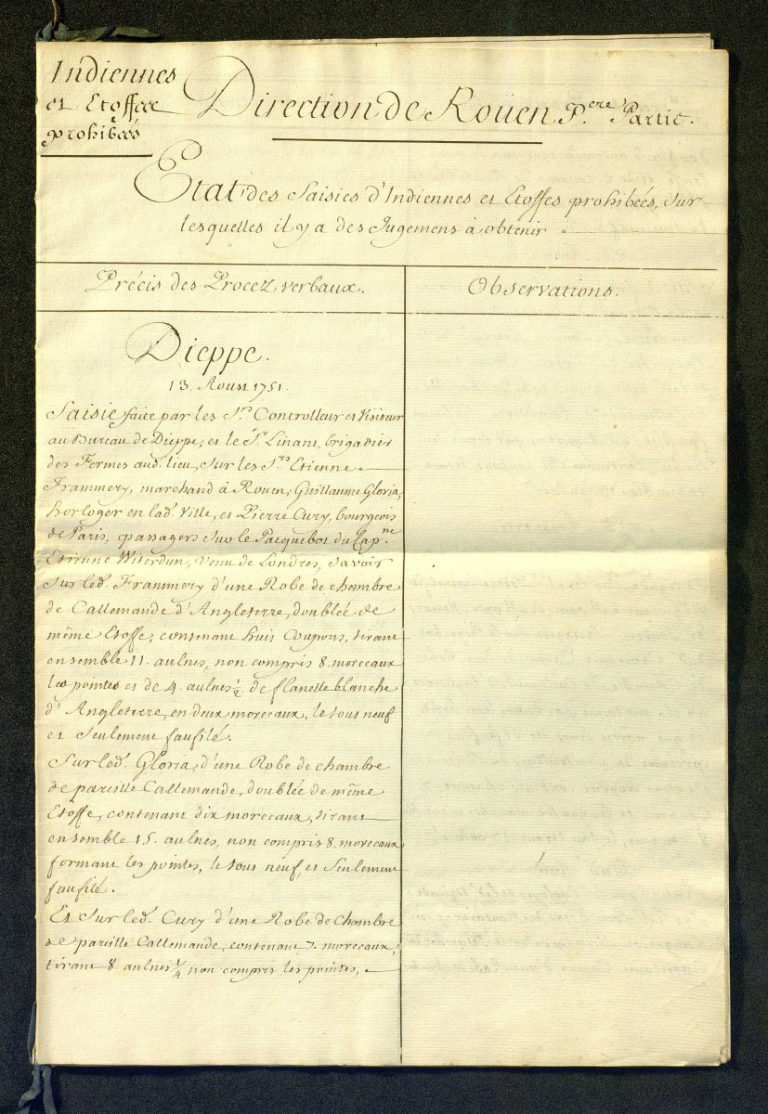 Indiennes
et Etoffes
prohibées
Direction de Rouen P.ere Partie.
Etat des Saisies d'Indiennes et Etoffes prohibées, sur
lesquelles il y a des Jugemens à obtenir
Précis des Procez verbaux.
Observations.
Dieppe.
13. Aoust 1751.
Saisie faite par les Srs Controlleur et Visiteur
au Bureau de Dieppe, et le Sr Linant, brigadier
des Fermes aud. lieu, sur les Srs Etienne
Frammery, marchand à Rouen, Guillaume Gloria,
horloger en lad. Ville, et Pierre Cury, bourgeois
de Paris, passagers sur le Pacquebot du Capne
Etienne Witerdun, venu de Londres, Savoir
Sur led. Frammery d'une Robe de chambre
de Callemande d'Angleterre, doublée de
même Etoffe, contenant huit Coupons, tirant
ensemble 11. aulnes, non compris 8. morceaux
les pointes et de 4. aulnes 1/2 de flanelle blanche
d'Angleterre, en deux morceaux, le tous neuf
et Seulement faufilé.
Sur led. Gloria, d'une Robe de chambre
de pareille Callemande, doublée de même
Etoffe, contenant dix morceaux, tirant
ensemble 15. aulnes, non compris 8. morceaux
formant les pointes, le tous neuf, et Seulement
faufilé.
Et Sur led. Cury d'une Robe de Chambre
de pareille Callemande, contenant 7. morceaux,
tirant 8 aulnes 1/4 non compris les pointes,